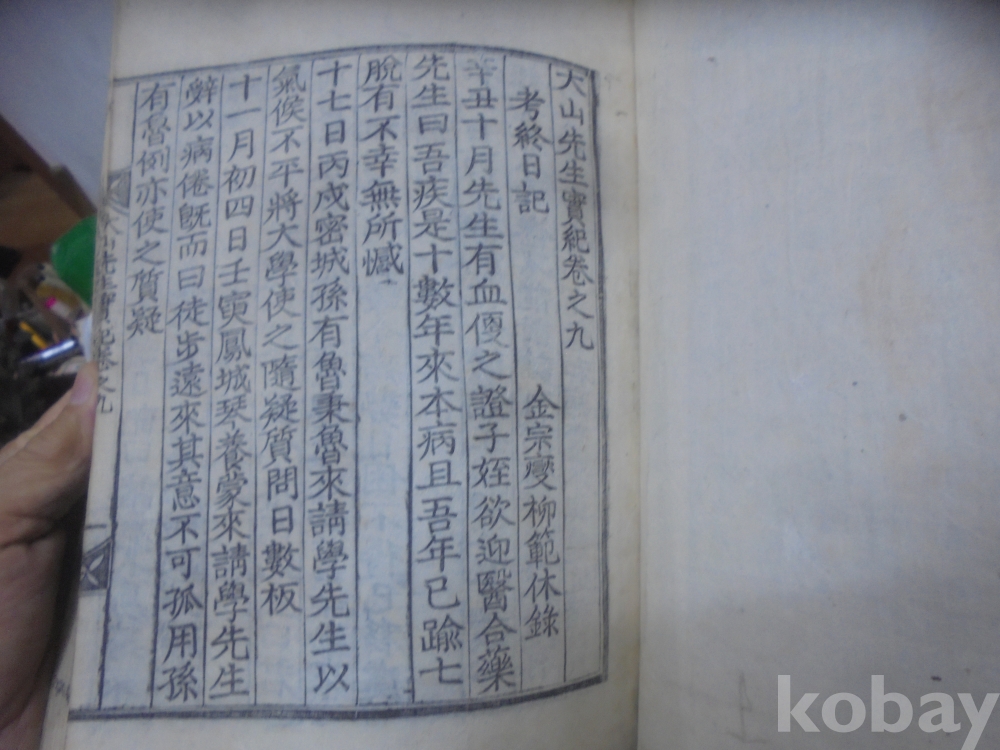 大山先生實紀卷之九
考終日記
金宗燮柳範休錄
辛丑十月先生有血便之證子姪欲迎醫合藥
先生曰吾疾是十數年來本病且吾年已踰七
脫有不幸無所憾
十七日丙戌密城孫有魯秉魯來請學先生以
氣候不平將大學使之隨疑質問日數板
十一月初四日壬寅鳳城琴養蒙來請學先生
辭以病倦旣而曰徒步遠來其意不可孤用孫
有魯例亦使之質疑
大山先生實紀卷之九
一
kobay